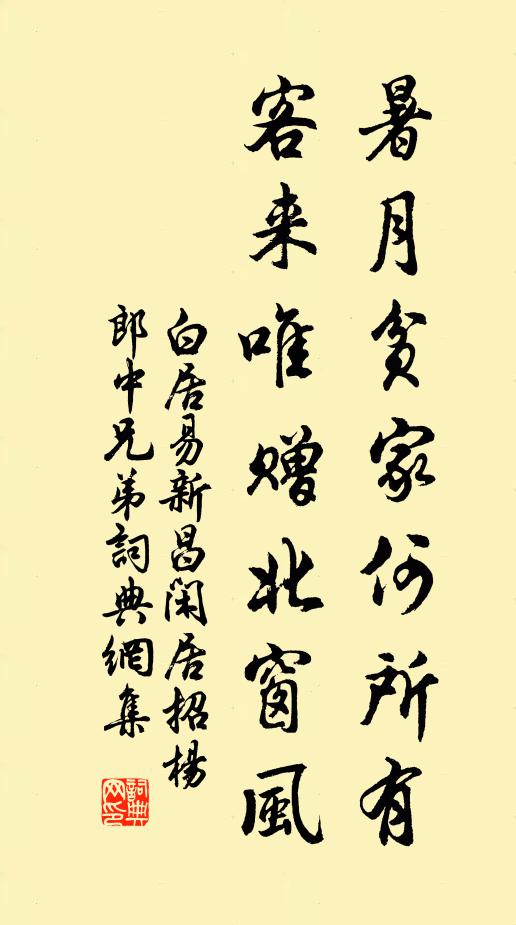 暑月貧家何所有
客来唯贈北窗風
白居易新昌閑居招楊
郎中兄弟詞典網集
詞典网印